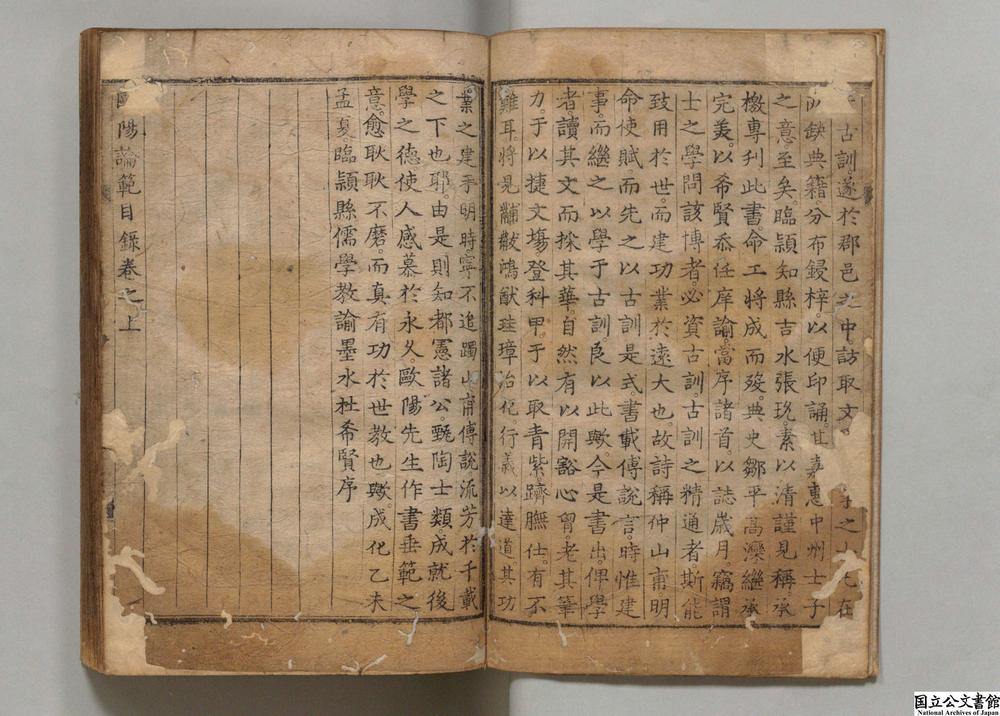 古訓。遂於郡邑之中訪取文
缺典籍。分布鋟梓。以便印誦。其嘉惠中州士子
之意至矣。臨潁知縣吉水張玧。素以清謹見稱。承
檄專刋此書。命工將成而歿。典史鄒平高灤繼承
完美。以希賢忝任庠諭。當序諸首。以誌歲月。竊謂
士之學問該博者。必資古訓。古訓之精通者。斯能
致用於世。而建功業於遠大也。故詩稱仲山甫明
命使賦。而先之以古訓是式。書載傳說言。時惟建
事。而繼之以學于古訓。良以此歟。今是書出。俾學
者讀其文而採其華。自然有以開豁心胷。老其筆
力。于以捷文塲登科甲。于以取青紫躋膴仕。有不
難耳。將見黼黻鴻猷。珪璋治化。行義以達道。其功
業之建乎明時。寧不追躅山甫傳說。流芳於千載
之下也耶。由是則知都憲諸公。甄陶士類。成就後
學之德。使人感慕於永久。歐陽先生作書垂範之
意。愈耿耿不磨。而真有功於世教也歟。成化乙未
孟夏臨潁縣儒學教諭墨水杜希賢序
陽論範目錄卷之上
国立公文書館
National Archives of Japan